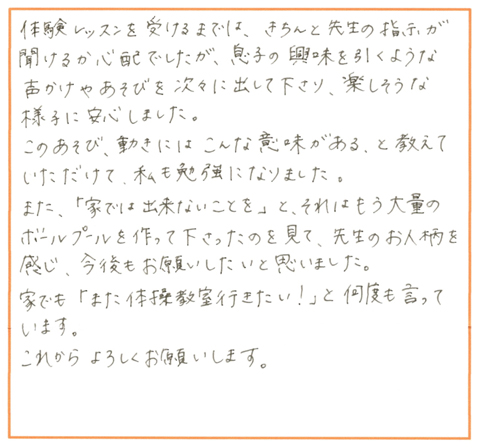 体験レッスンを受けるまでは、きちんと先生の指示が
聞けるか心配でしたが、息子の興味を引くような
声かけやあそびを次々に出して下さり、楽しそうな
様子に安心しました。
このあそび、動きにはこんな意味がある、と教えて
いただけて、私も勉強になりました。
また、「家では出来ないことを」と、それはもう大量の
ボールプールを作って下さったのを見て、先生のお人柄を
感じ、今後もお願いしたいと思いました。
家でも「また体操教室行きたい!」と何度も言って
います。
これからよろしくお願いします。